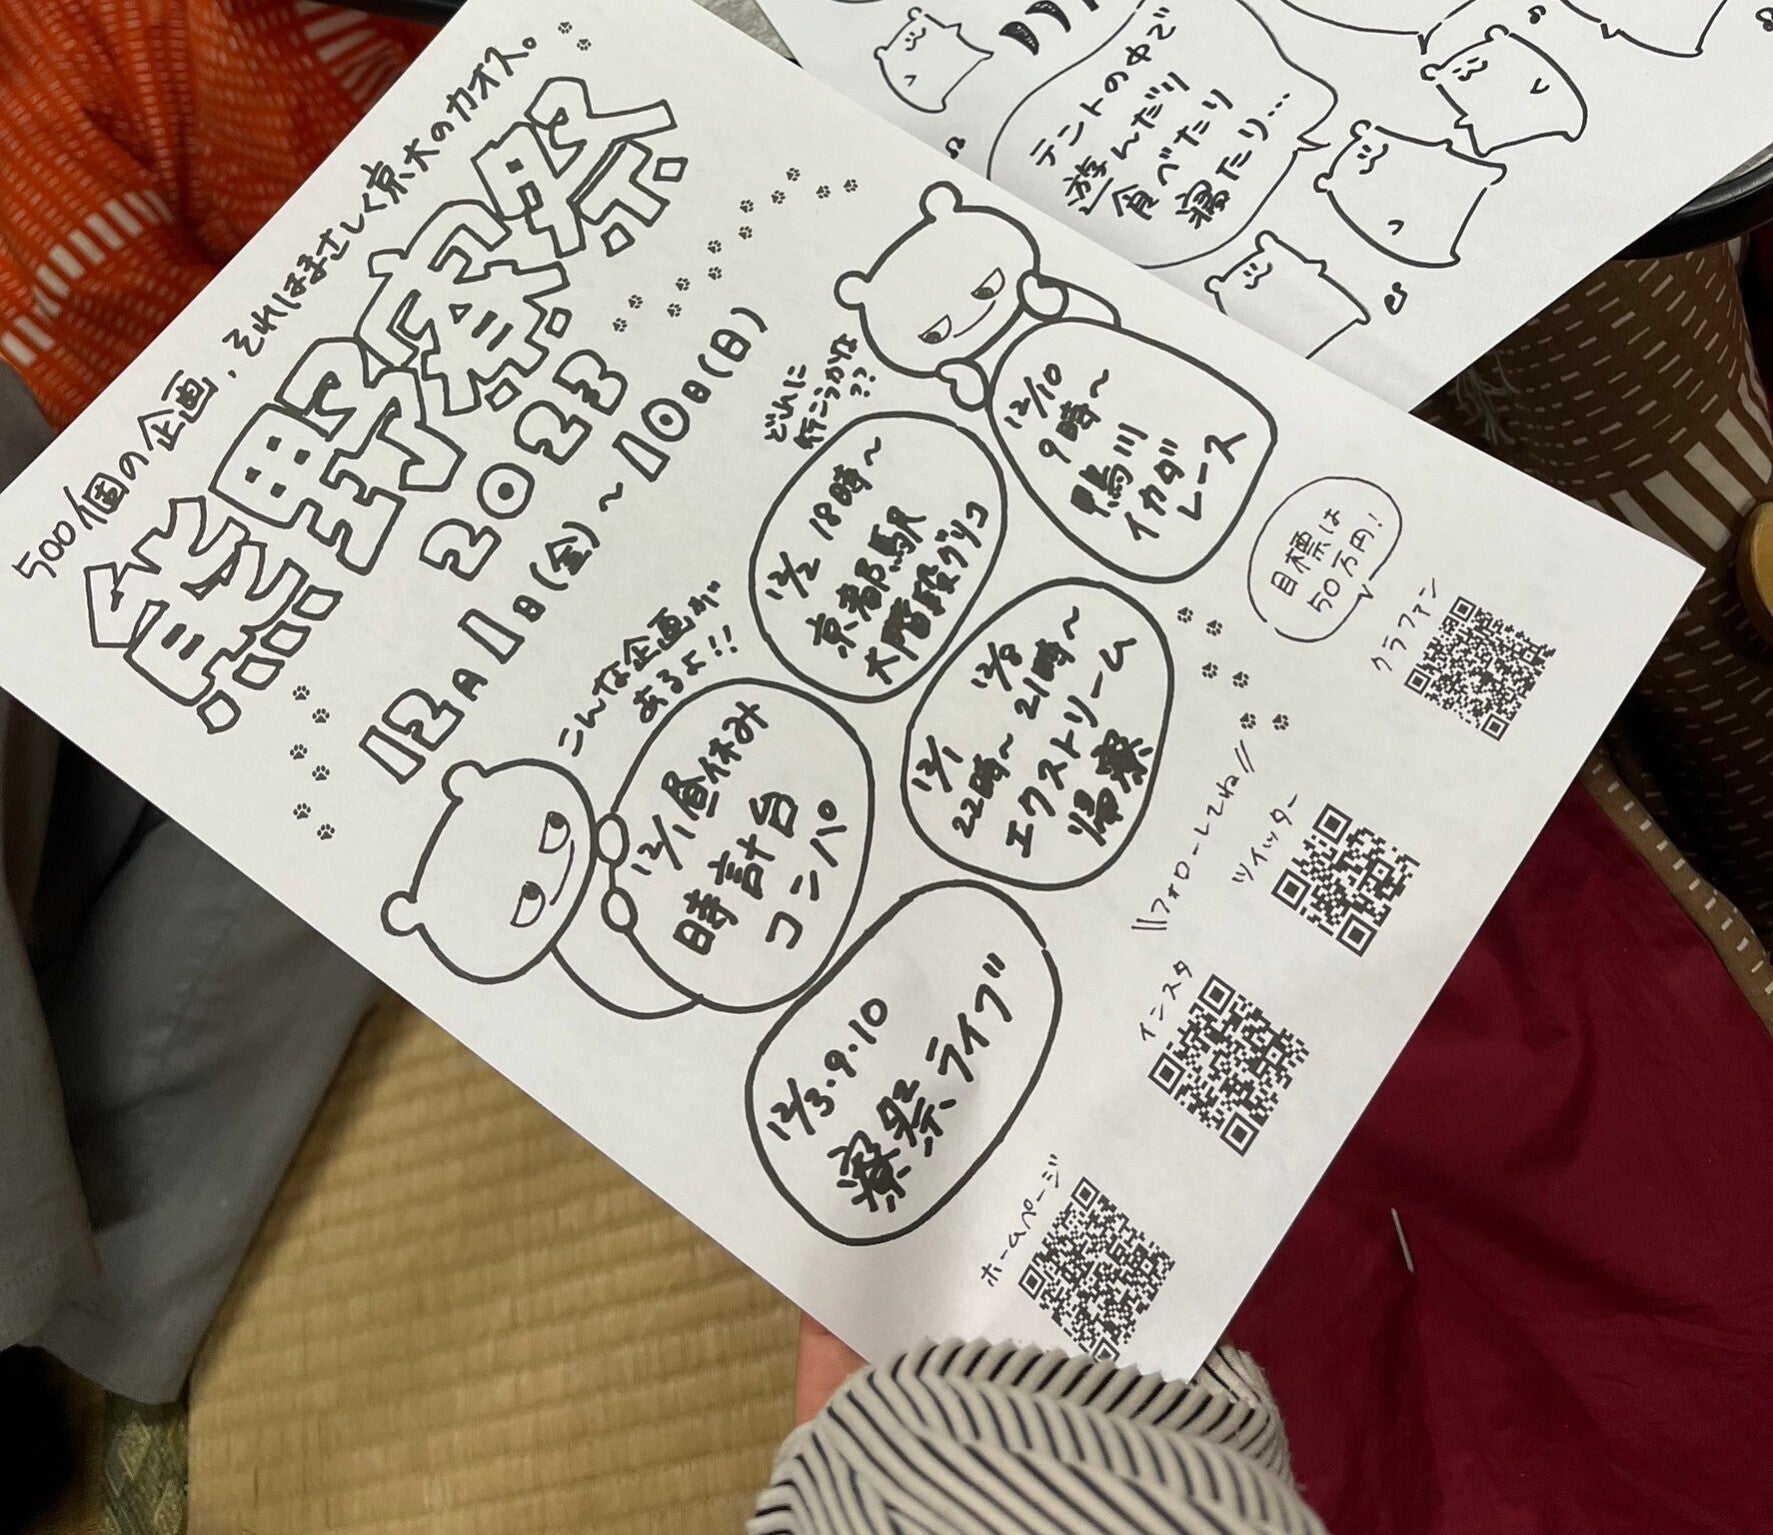 500個の企画、それはまさしく京大のカオス。
熊野寮祭
2023
12月1日(金)～10日(日)
どれに
行こうかな
??
こんな企画が
あるよ!!
12/10
9時～
鴨川
イカダ
レース
12/2 18時～
京都駅
大階段グリコ
12/1 22時～
12/8 21時～
エクストリーム
帰寮
12/1昼休み
時計台
コンパ
12/3・9・10
寮祭ライブ
目標は
50万円!
クラファン
\\フォローしてね//
ツイッター
インスタ
ホームページ
テントの中で
遊んだり
食べたり
寝たり…